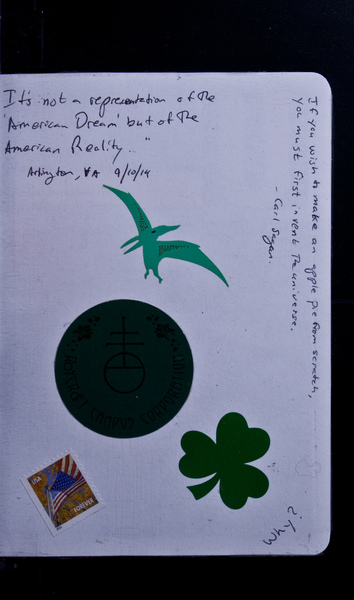 It's not a representation of the
'American Dream' but of the
American Reality..."
Arlington, VA 9/10/14
If you wish to make an apple pie from scratch,
you must first invent the universe.
- Carl Sagan.
USA
FOREVER
Why?